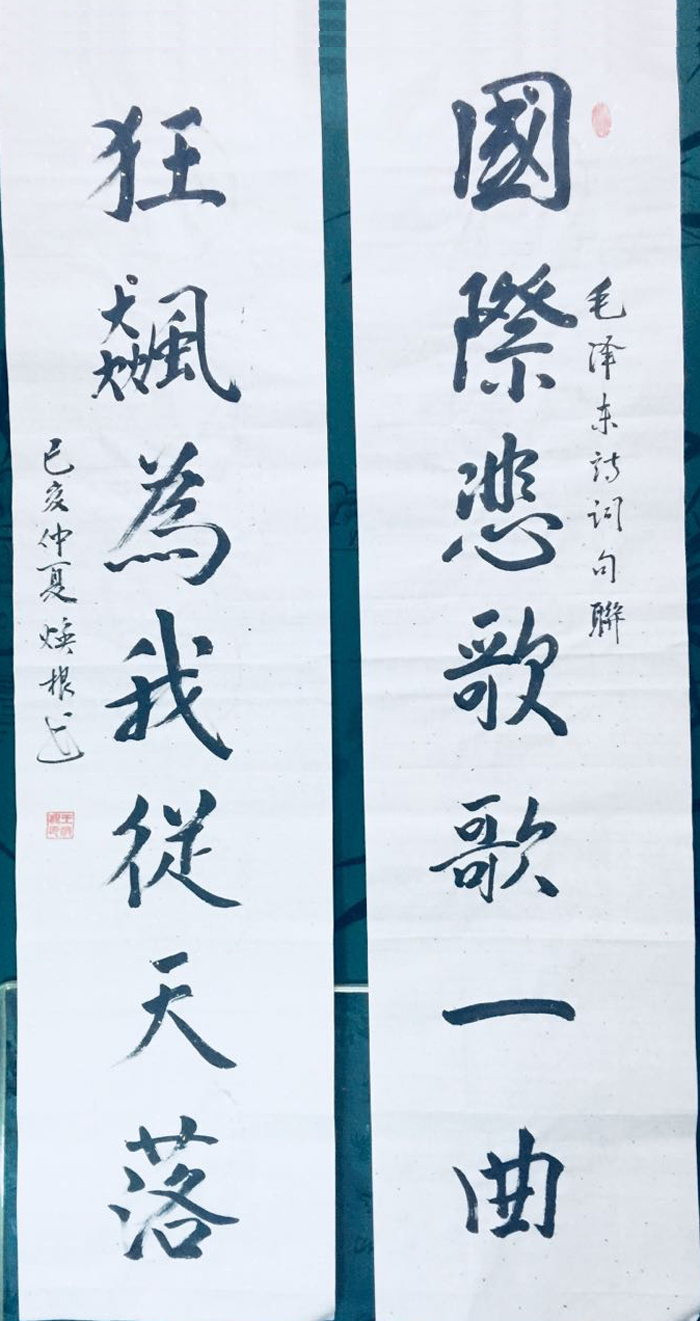 國際悲歌歌一曲
毛泽东詩词句聯
狂飆為我從天落
己亥仲夏焕根书